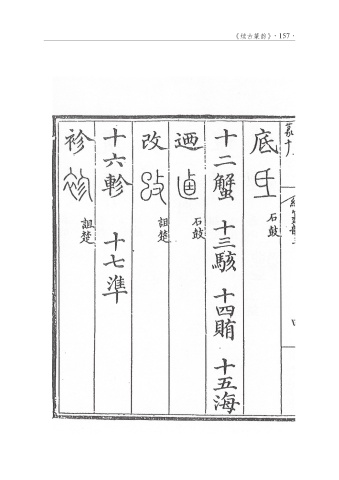 《续古篆韵》·157·
底 石鼓
十二蟹 十三駭 十四賄 十五海
迺 石鼓
改 詛楚
十六軫 十七準
袗 詛楚